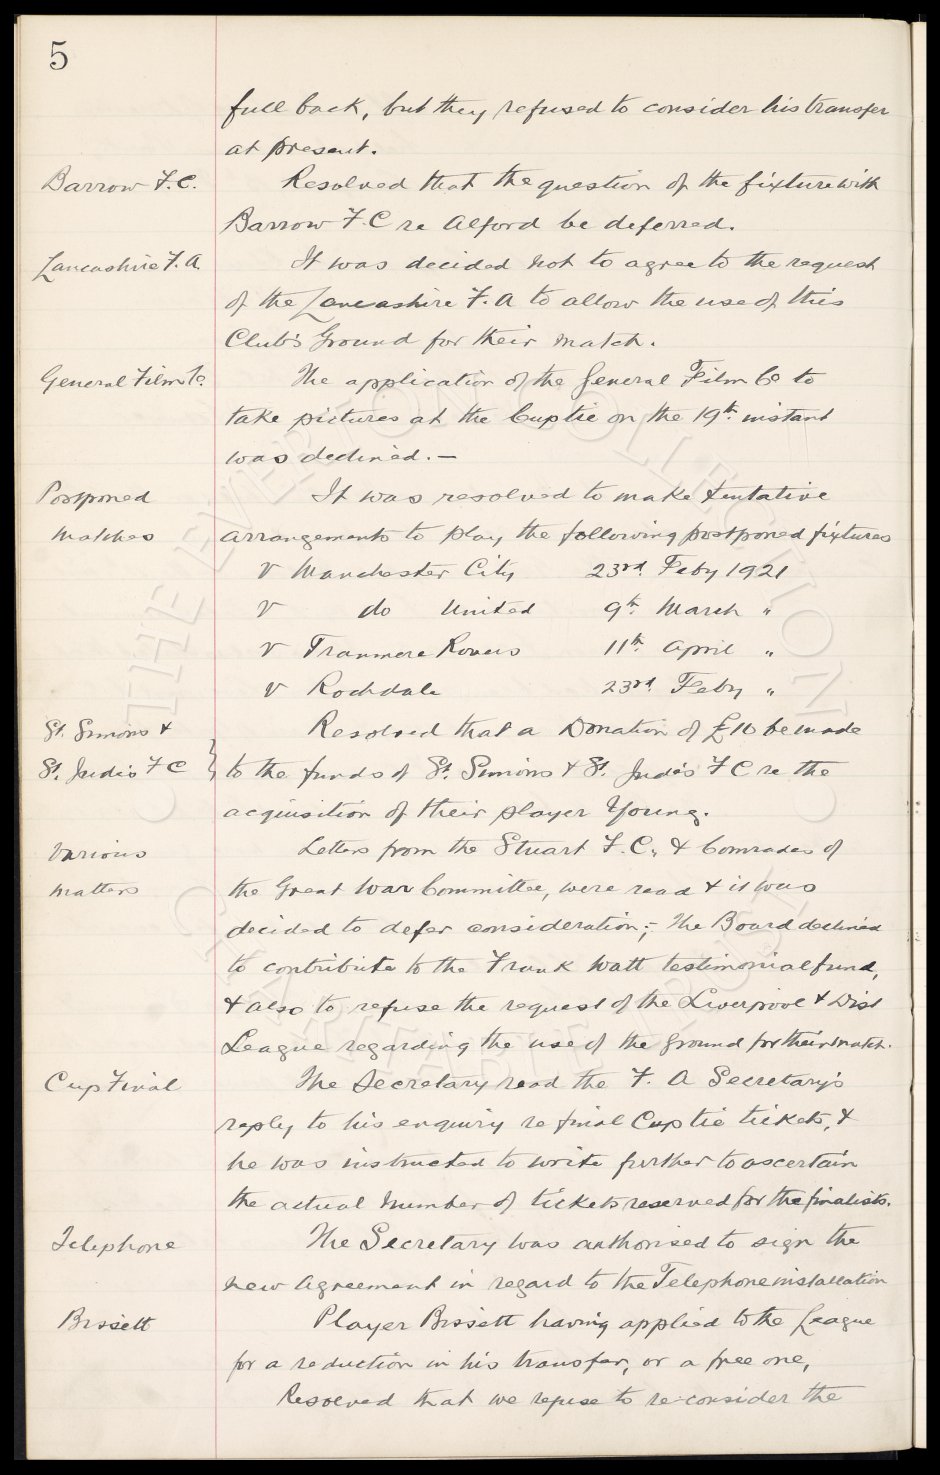 5
full back, but they refused to consider his transfer
at present.
Barrow F.C. Resolved that the question of the fixture with
Barrow F.C re Alford be deferred.
Lancashire F.A. It was decided not to agree to the request
of the Lancashire F.A to allow the use of this
Club's Ground for their match.
General Film Co. The application of the General Film Co to
take pictures at the Cuptie on the 19th instant
was declined. —
Postponed It was resolved to make tentative
Matches arrangements to play the following postponed fixtures
V Manchester City 23rd Feby 1921
V do United 9th March "
V Tranmere Rovers 11th April "
V Rochdale 23rd Feby "
St. Simons & Resolved that a Donation of £10 be made
St. Jude's F C } to the funds of St. Simons & St. Jude's F C re the
acquisition of their player Young.
Various Letters from the Stuart F.C., & Comrades of
Matters the Great War Committee, were read & it was
decided to defer consideration;- The Board declined
to contribute to the Frank Watt testimonial fund,
& also to refuse the request of the Liverpool & Dist
League regarding the use of the ground for their match.
Cup Final The Secretary read the F. A Secretary's
reply to his enquiry re final Cup tie tickets, &
he was instructed to write further to ascertain
the actual number of tickets reserved for the finalists.
Telephone The Secretary was authorised to sign the
new Agreement in regard to the Telephone installation
Bissett Player Bissett having applied to the League
for a reduction in his transfer, or a free one,
Resolved that we refuse to re-consider the
THE EVERTON COLLECTION